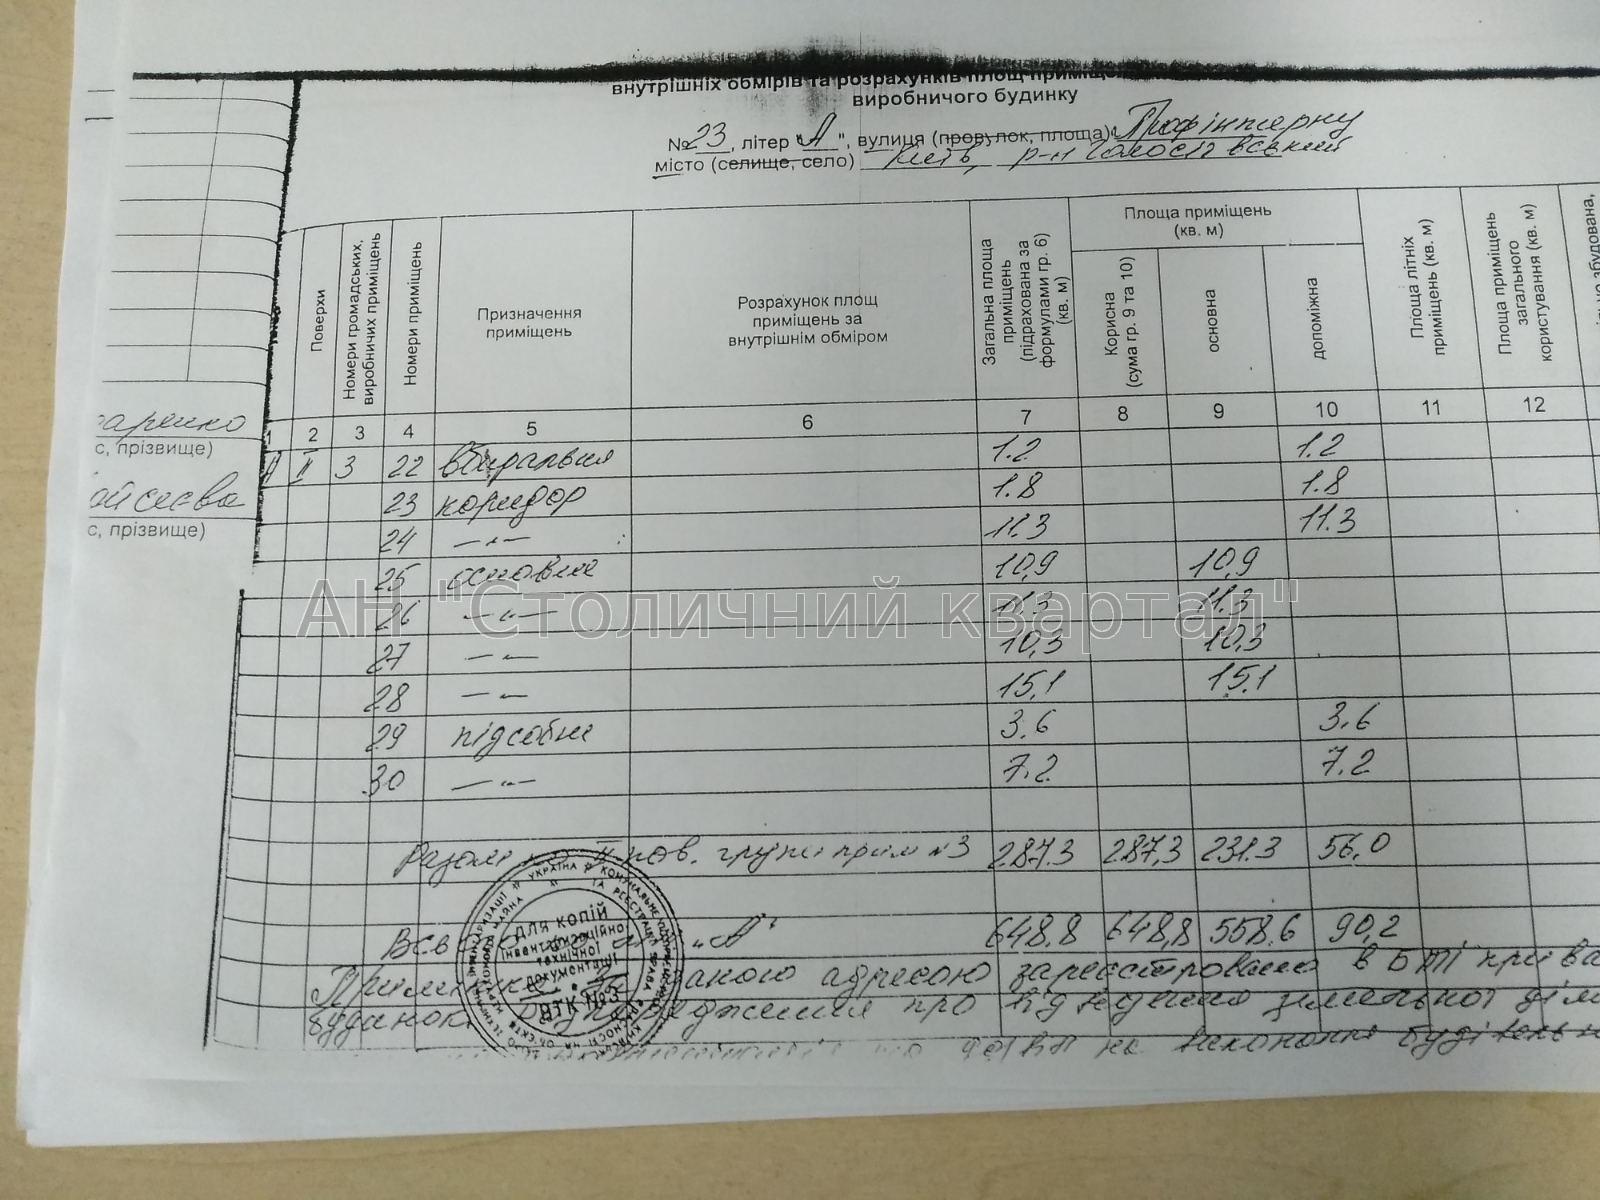 внутрішніх обмірів та розрахунків площ приміщ
виробничого будинку
№ 23, літер "А", вулиця (провулок, площа) Профінтерну
місто (селище, село) Київ, р-н Голосіївський
Поверхи
Номери громадських, виробничих приміщень
Номери приміщень
Призначення приміщень
Розрахунок площ приміщень за внутрішнім обміром
Загальна площа приміщень (підрахована за формулами гр. 6) (кв. м)
Площа приміщень (кв. м)
Корисна (сума гр. 9 та 10)
основна
допоміжна
Площа літніх приміщень (кв. м)
Площа приміщень загального користування (кв. м)
1 2 3 4 5 6 7 8 9 10 11 12
А II 3 22 вбиральня 1.2 1.2
23 коридор 1.8 1.8
24 —"— 11.3 11.3
25 основне 10,9 10,9
26 —"— 11.3 11.3
27 —"— 10,3 10,3
28 —"— 15,1 15,1
29 підсобне 3.6 3.6
30 —"— 7.2 7.2
Разом по II пов. групи прим №3 287.3 287,3 231.3 56,0
"А" 648.8 648,8 558,6 90,2
адресою зареєстровано в БТІ
на виконання
с, прізвище)
с, прізвище)
ДЛЯ КОПІЙ
інвентаризаційно-
технічної
документації
ВТК №3
АН "Столичний квартал"